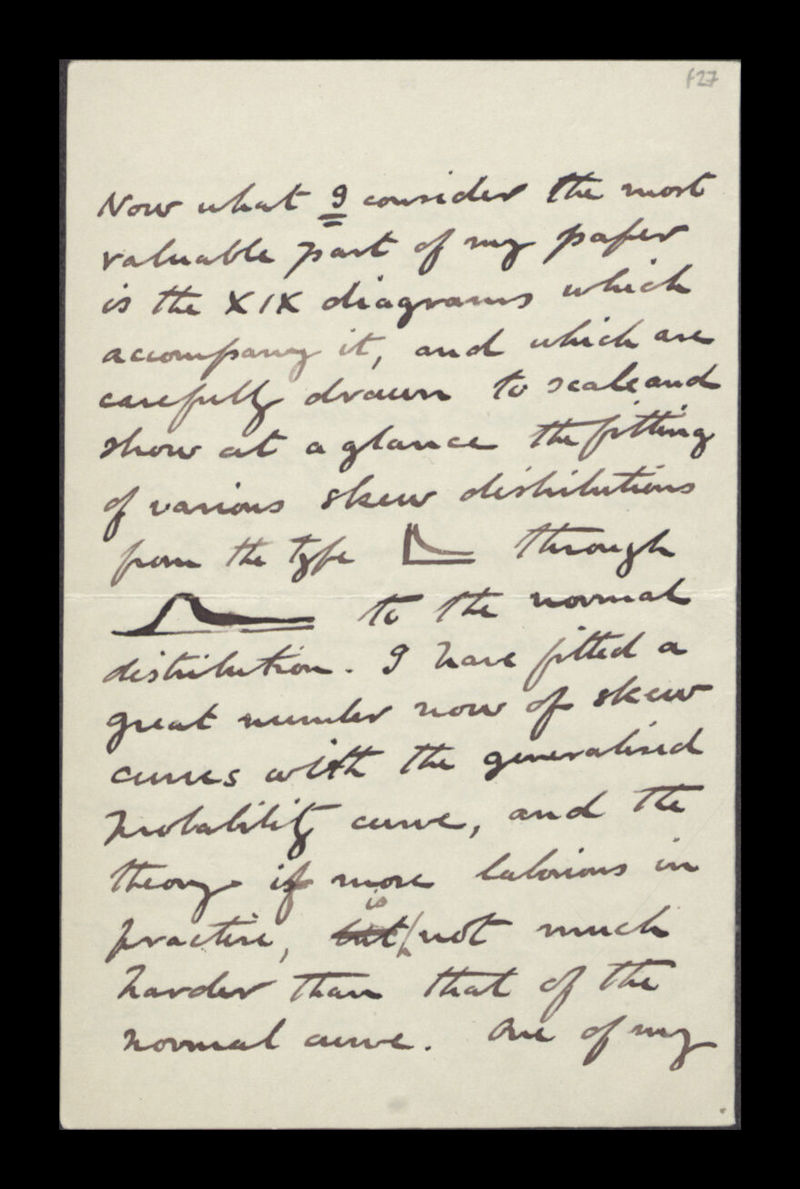 f27
Now what I consider the most
valuable part of my paper
is the XIX diagrams which
accompany it, and which are
carefully drawn to scale and
show at a glance the fitting
of various skew distributions
from the type through
to the normal
distribution. I have fitted a
great number now of skew
curves with the generalised
probability curve, and the
theory if more laborious in
is
practise, but not much
harder than that of the
normal curve. One of my